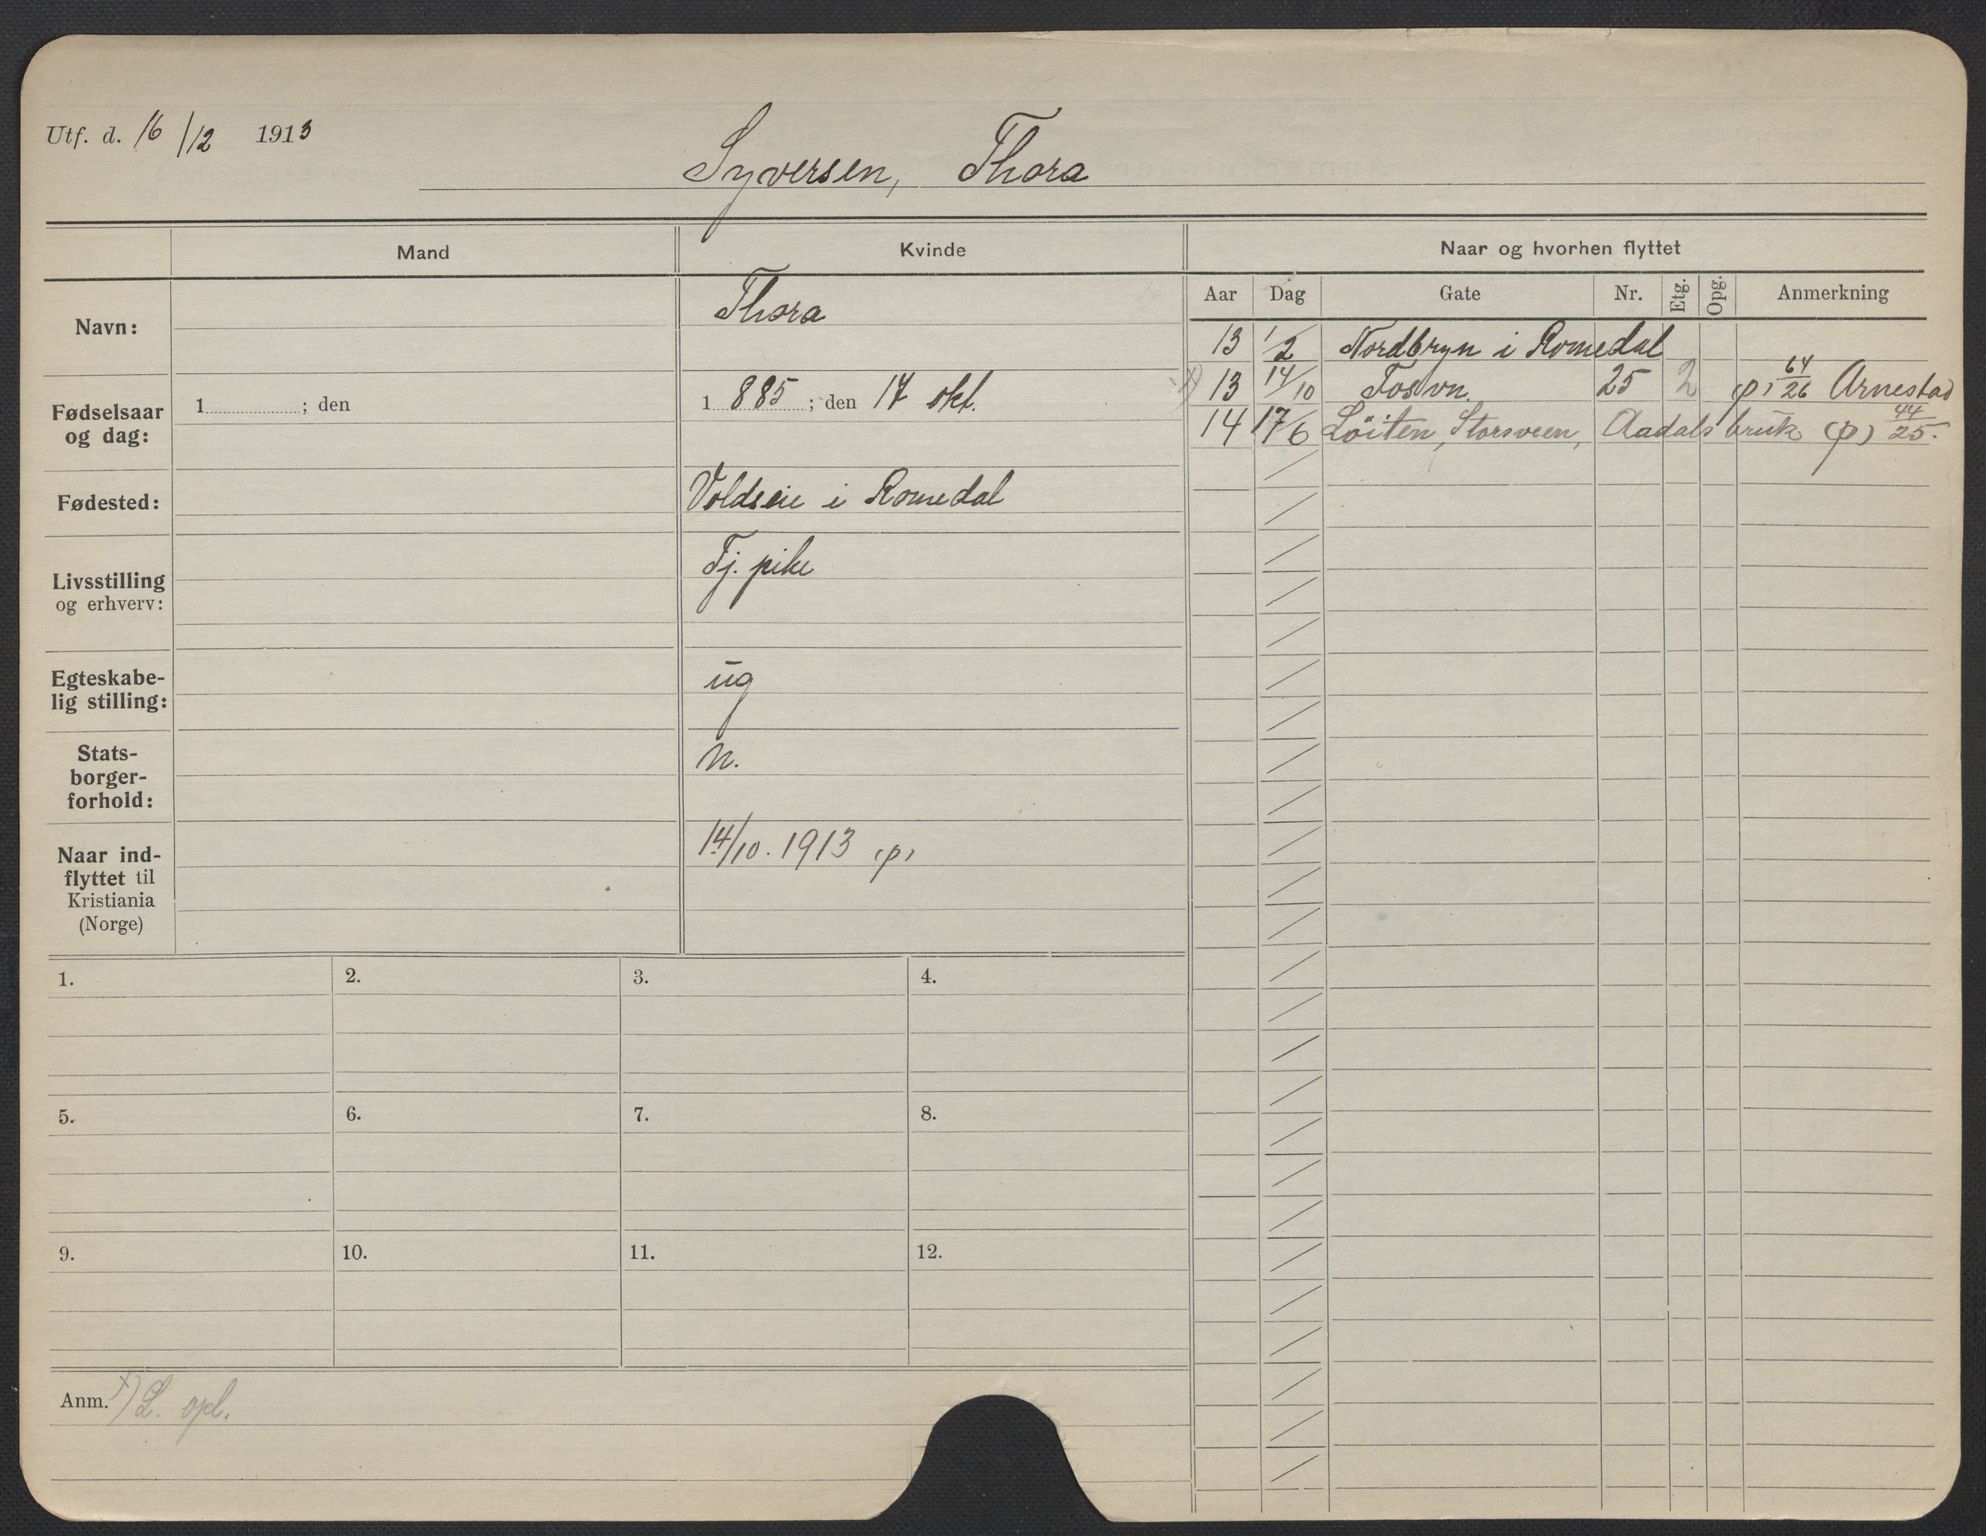 Utf. d. 16/12 1913
Syversen, Thora
Mand
Kvinde
Naar og hvorhen flyttet
Aar Dag Gate Nr. Etg. Opg. Anmerkning
Navn:
Thora
13 1/2 Nordbryn i Romedal
Fødselsaar og dag:
1 ; den
1 885 ; den 17 okt.
x) 13 14/10 Fosvn. 25 2 (p) 64/26 Arnestad
14 17/6 Løiten, Storsveen, Aadals bruk (p) 44/25.
Fødested:
Voldseie i Romedal
Livsstilling
og erhverv:
Tj. pike
Egteskabe-
lig stilling:
ug
Stats-
borger-
forhold:
n.
Naar ind-
flyttet til
Kristiania
(Norge)
14/10. 1913 (p)
1. 2. 3. 4.
5. 6. 7. 8.
9. 10. 11. 12.
Anm. x) L. opl.